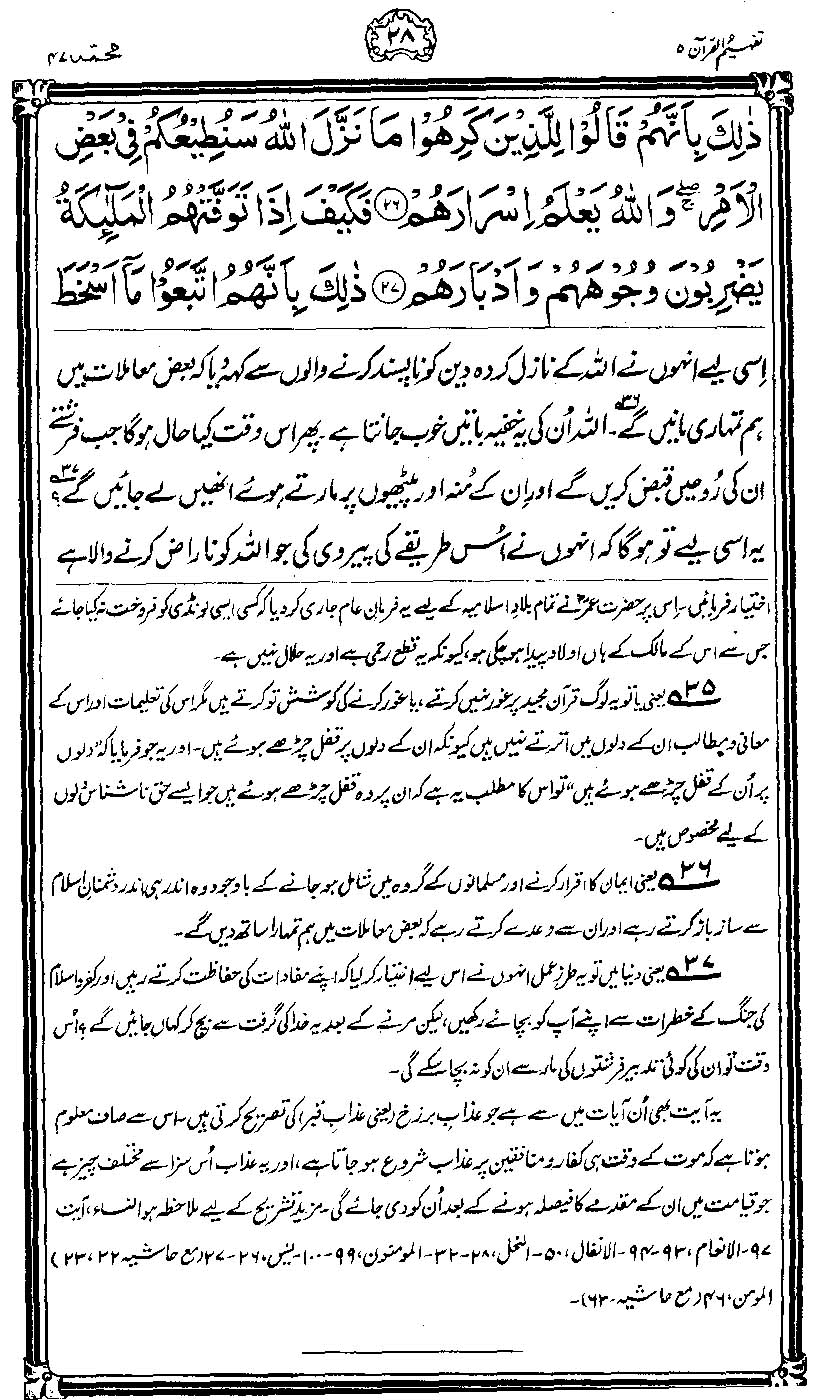 تفہیم القرآن ۵
۲۸
محمّد ۴۷
ذٰلِكَ بِاَنَّهُمْ قَالُوْا لِلَّذِيْنَ كَرِهُوْا مَا نَزَّلَ اللّٰهُ سَنُطِيْعُكُمْ فِيْ بَعْضِ
الْاَمْرِ ۖۚ وَاللّٰهُ يَعْلَمُ اِسْرَارَهُمْ ﴿۲۶﴾ فَكَيْفَ اِذَا تَوَفَّتْهُمُ الْمَلٰٓئِكَةُ
يَضْرِبُوْنَ وُجُوْهَهُمْ وَاَدْبَارَهُمْ ﴿۲۷﴾ ذٰلِكَ بِاَنَّهُمُ اتَّبَعُوْا مَاۤ اَسْخَطَ
اِسی لیے انہوں نے اللہ کے نازل کردہ دین کو ناپسند کرنے والوں سے کہہ دیا کہ بعض معاملات میں
ہم تمہاری مانیں گے۳۶۔ اللہ اُن کی یہ خفیہ باتیں خوب جانتا ہے۔ پھر اس وقت کیا حال ہوگا جب فرشتے
ان کی رُوحیں قبض کریں گے اور اِن کے مُنہ اور پیٹھوں پر مارتے ہوئے انھیں لے جائیں گے؟۳۷
یہ اسی لیے تو ہوگا کہ انہوں نے اُس طریقے کی پیروی کی جو اللہ کو ناراض کرنے والا ہے
اختیار فرمائیں۔ اِس پر حضرت عمرؓ نے تمام بلادِ اسلامیہ کے لیے یہ فرمانِ عام جاری کر دیا کہ کسی ایسی لونڈی کو فروخت نہ کیا جائے
جس سے اس کے مالک کے ہاں اولاد پیدا ہو چکی ہو، کیونکہ یہ قطع رحمی ہے اور یہ حلال نہیں ہے۔
۳۵ یعنی یا تو یہ لوگ قرآن مجید پر غور نہیں کرتے، یا غور کرنے کی کوشش تو کرتے ہیں مگر اس کی تعلیمات اور اس کے
معانی و مطالب ان کے دلوں میں اترتے نہیں ہیں کیونکہ ان کے دلوں پر قفل چڑھے ہوئے ہیں۔ اور یہ جو فرمایا کہ "دلوں
پر اُن کے قفل چڑھے ہوئے ہیں" تو اس کا مطلب یہ ہے کہ ان پر وہ قفل چڑھے ہوئے ہیں جو ایسے حق ناشناس دلوں
کے لیے مخصوص ہیں۔
۳۶ یعنی ایمان کا اقرار کرنے اور مسلمانوں کے گروہ میں شامل ہو جانے کے باوجود وہ اندر ہی اندر دشمنانِ اسلام
سے ساز باز کرتے رہے اور ان سے وعدے کرتے رہے کہ بعض معاملات میں ہم تمہارا ساتھ دیں گے۔
۳۷ یعنی دنیا میں تو یہ طرزِ عمل انہوں نے اس لیے اختیار کر لیا کہ اپنے مفادات کی حفاظت کرتے رہیں اور کفر و اسلام
کی جنگ کے خطرات سے اپنے آپ کو بچائے رکھیں، لیکن مرنے کے بعد یہ خدا کی گرفت سے بچ کر کہاں جائیں گے؟ اُس
وقت تو ان کی کوئی تدبیر فرشتوں کی مار سے ان کو نہ بچا سکے گی۔
یہ آیت بھی اُن آیات میں سے ہے جو عذابِ برزخ (یعنی عذابِ قبر) کی تصریح کرتی ہیں۔ اس سے صاف معلوم
ہوتا ہے کہ موت کے وقت ہی کفار و منافقین پر عذاب شروع ہو جاتا ہے، اور یہ عذاب اُس سزا سے مختلف چیز ہے
جو قیامت میں ان کے مقدمے کا فیصلہ ہونے کے بعد اُن کو دی جائے گی۔ مزید تشریح کے لیے ملاحظہ ہو النساء، آیت
۹۷۔ الانعام، ۹۳-۹۴۔ الانفال، ۵۰۔ النحل، ۲۸-۳۲۔ المومنون، ۹۹-۱۰۰۔ یٰس، ۲۶-۲۷ (مع حاشیہ ۲۲، ۲۳)
المومن، ۴۶ (مع حاشیہ ۶۳)۔